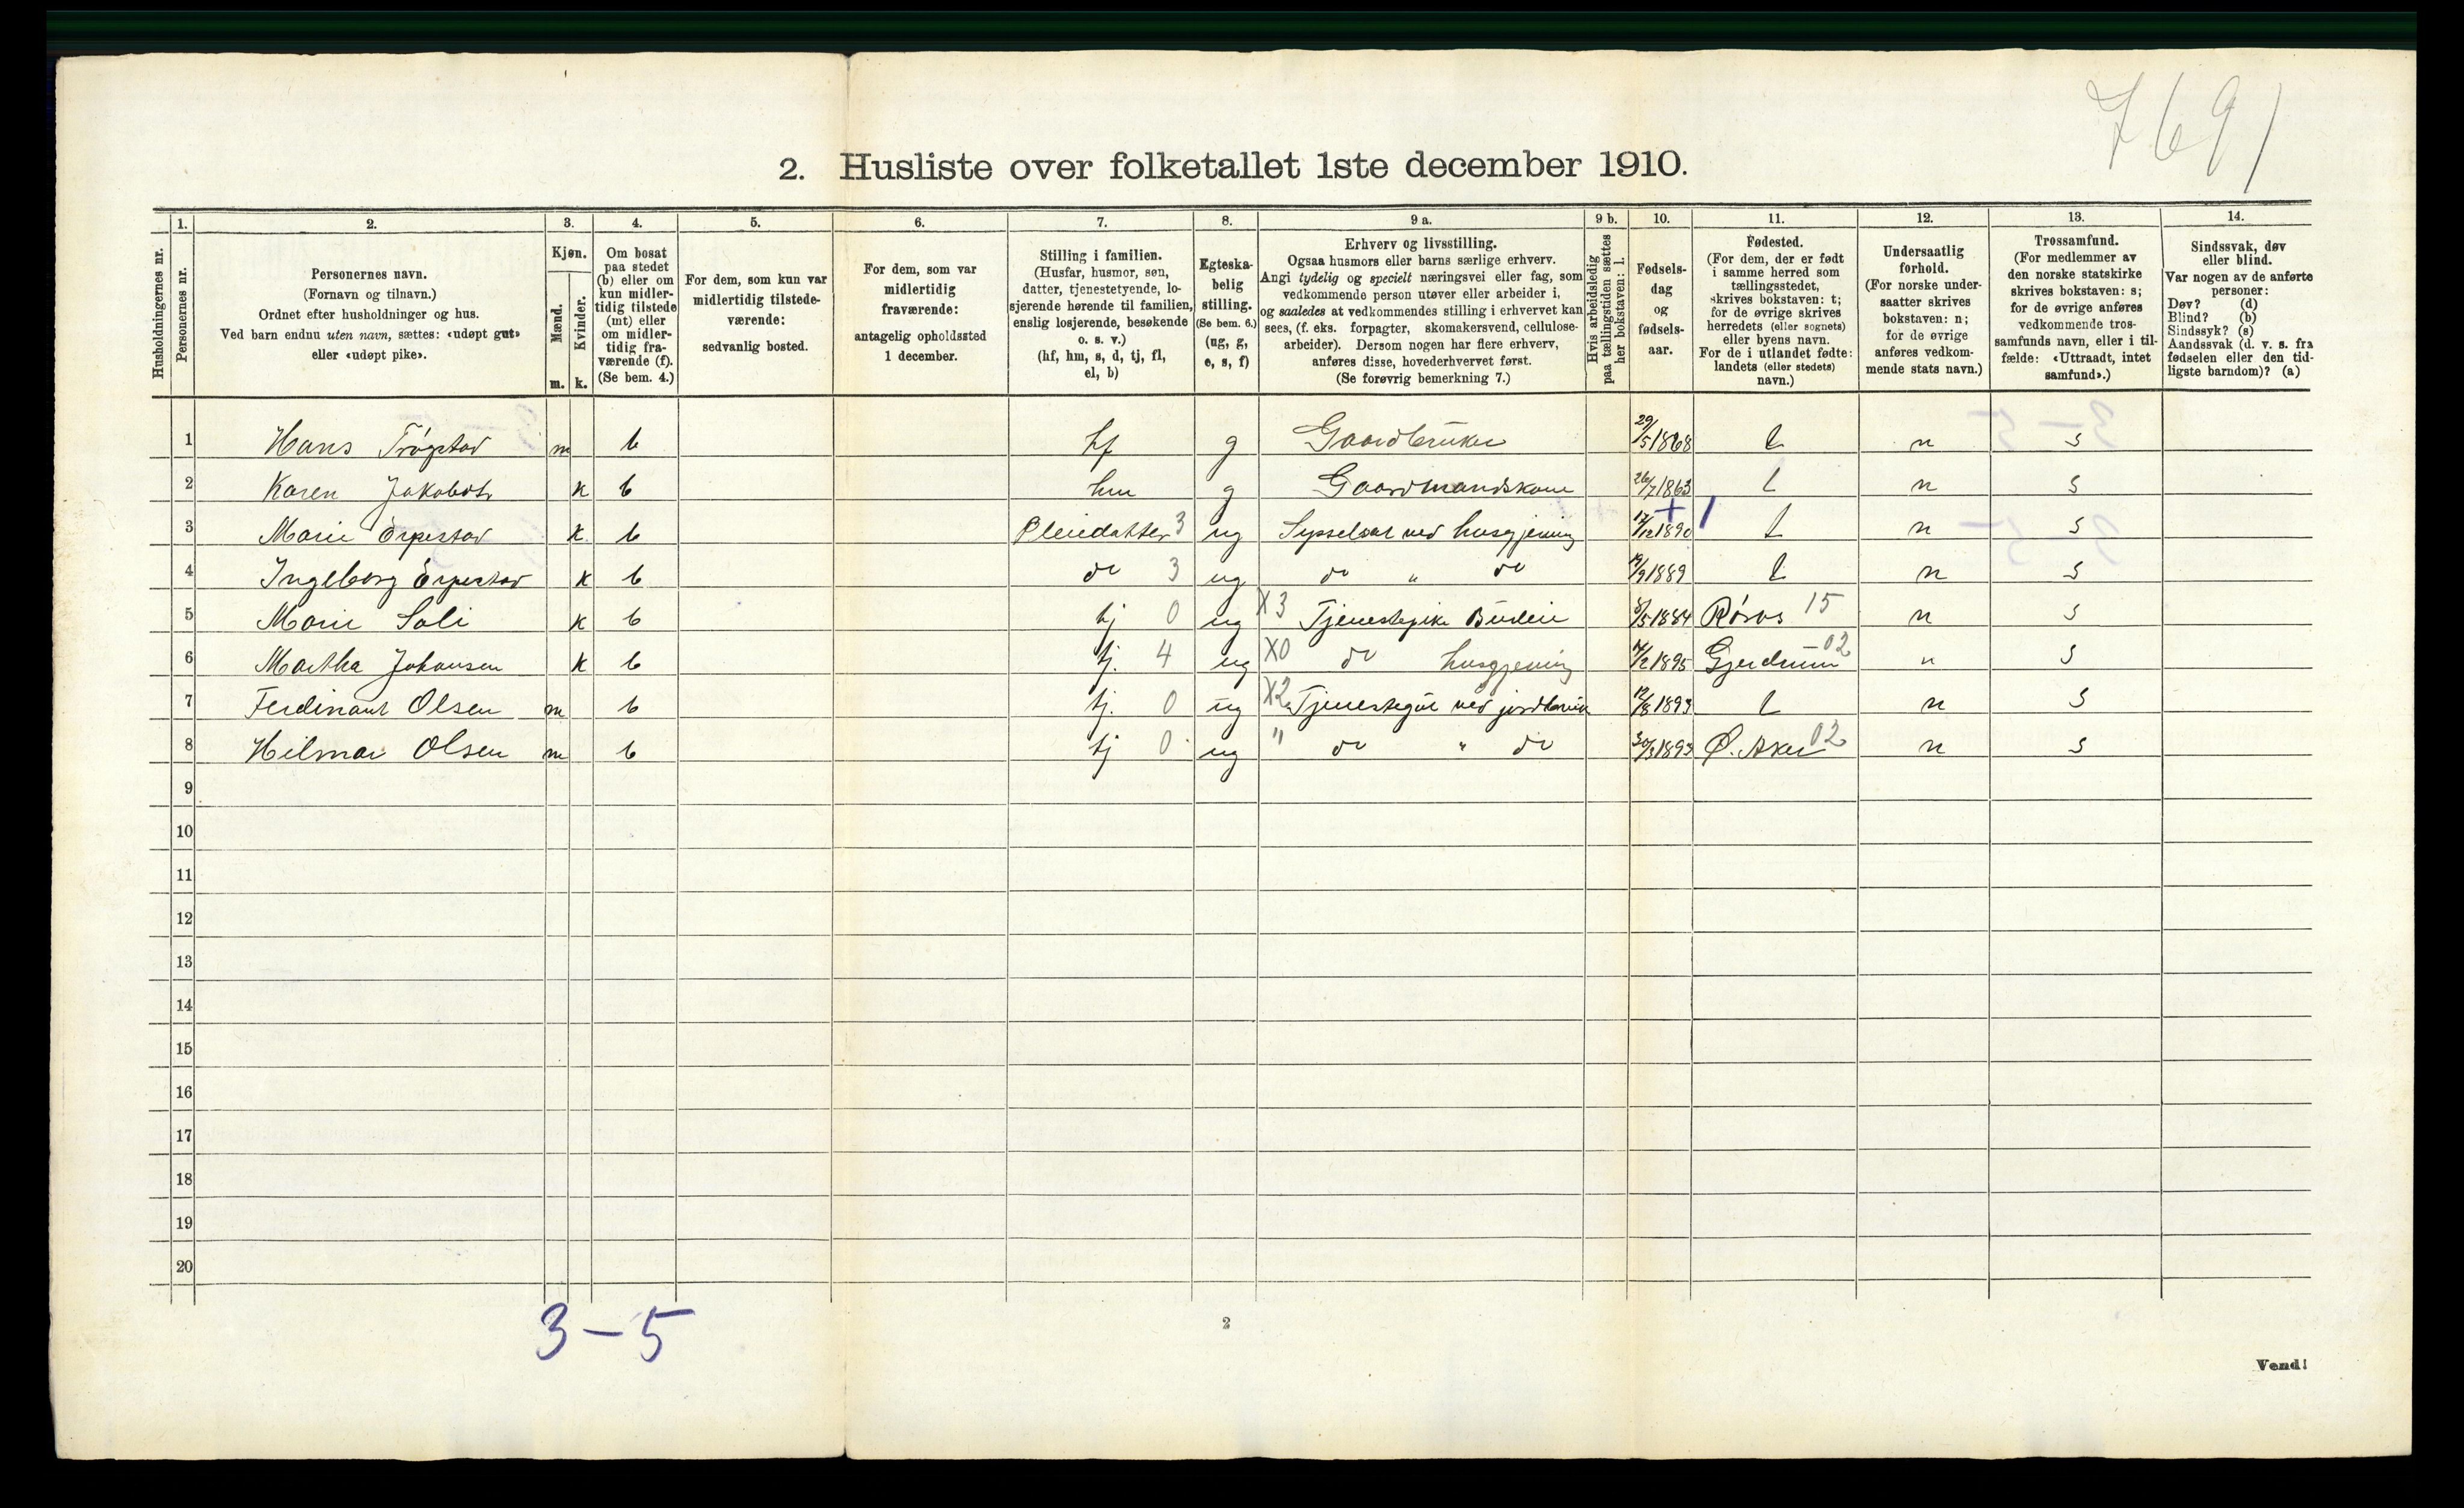 7691
2. Husliste over folketallet 1ste december 1910.
1. 2. 3. 4. 5. 6. 7. 8. 9 a. 9 b. 10. 11. 12. 13. 14.
Husholdningernes nr.
Personernes nr.
Personernes navn.
(Fornavn og tilnavn.)
Ordnet efter husholdninger og hus.
Ved barn endnu uten navn, sættes: «udøpt gut»
eller «udøpt pike».
Kjøn.
Mænd.
Kvinder.
m. k.
Om bosat
paa stedet
(b) eller om
kun midler-
tidig tilstede
(mt) eller
om midler-
tidig fra-
værende (f).
(Se bem. 4.)
For dem, som kun var
midlertidig tilstede-
værende:
sedvanlig bosted.
For dem, som var
midlertidig
fraværende:
antagelig opholdssted
1 december.
Stilling i familien.
(Husfar, husmor, søn,
datter, tjenestetyende, lo-
sjerende hørende til familien,
enslig losjerende, besøkende
o. s. v.)
(hf, hm, s, d, tj, fl,
el, b)
Egteska-
belig
stilling.
(Se bem. 6.)
(ug, g,
e, s, f)
Erhverv og livsstilling.
Ogsaa husmors eller barns særlige erhverv.
Angi tydelig og specielt næringsvei eller fag, som
vedkommende person utøver eller arbeider i,
og saaledes at vedkommendes stilling i erhvervet kan
sees, (f. eks. forpagter, skomakersvend, cellulose-
arbeider). Dersom nogen har flere erhverv,
anføres disse, hovederhvervet først.
(Se forøvrig bemerkning 7.)
Hvis arbeidsledig
paa tællingstiden sættes
her bokstaven: l.
Fødsels-
dag
og
fødsels-
aar.
Fødested.
(For dem, der er født
i samme herred som
tællingsstedet,
skrives bokstaven: t;
for de øvrige skrives
herredets (eller sognets)
eller byens navn.
For de i utlandet fødte:
landets (eller stedets)
navn.)
Undersaatlig
forhold.
(For norske under-
saatter skrives
bokstaven: n;
for de øvrige
anføres vedkom-
mende stats navn.)
Trossamfund.
(For medlemmer av
den norske statskirke
skrives bokstaven: s;
for de øvrige anføres
vedkommende tros-
samfunds navn, eller i til-
fælde: «Uttraadt, intet
samfund».)
Sindssvak, døv
eller blind.
Var nogen av de anførte
personer:
Døv? (d)
Blind? (b)
Sindssyk? (s)
Aandssvak (d. v. s. fra
fødselen eller den tid-
ligste barndom)? (a)
1 Hans Trøgstad m b hf g Gaardbruker 29/5 1868 t n s
2 Karen Jakobdtr k b hm g Gaardmandskone 26/7 1863 t n s
3 Marie k b Pleiedatter 3 ug Sysselsat ved husgjerning 17/12 1890 t n s
4 Ingeborg k b do 3 ug do " do 19/9 1889 t n s
5 Marie Soli k b tj 0 ug X3 Tjenestepike Budeie 8/5 1884 Røros 15 n s
6 Martha Johansen k b tj. 4 ug X0 do husgjerning 1895 Gjerdrum 02 n s
7 Ferdinant Olsen m b tj. 0 ug X2 Tjenestegut ved jordbruk 12/8 1893 t n s
8 Hilmar Olsen m b tj 0 ug " do " do 1893 Ø. Aker 02 n s
9
10
11
12
13
14
15
16
17
18
19
20
3-5
2
Vend!